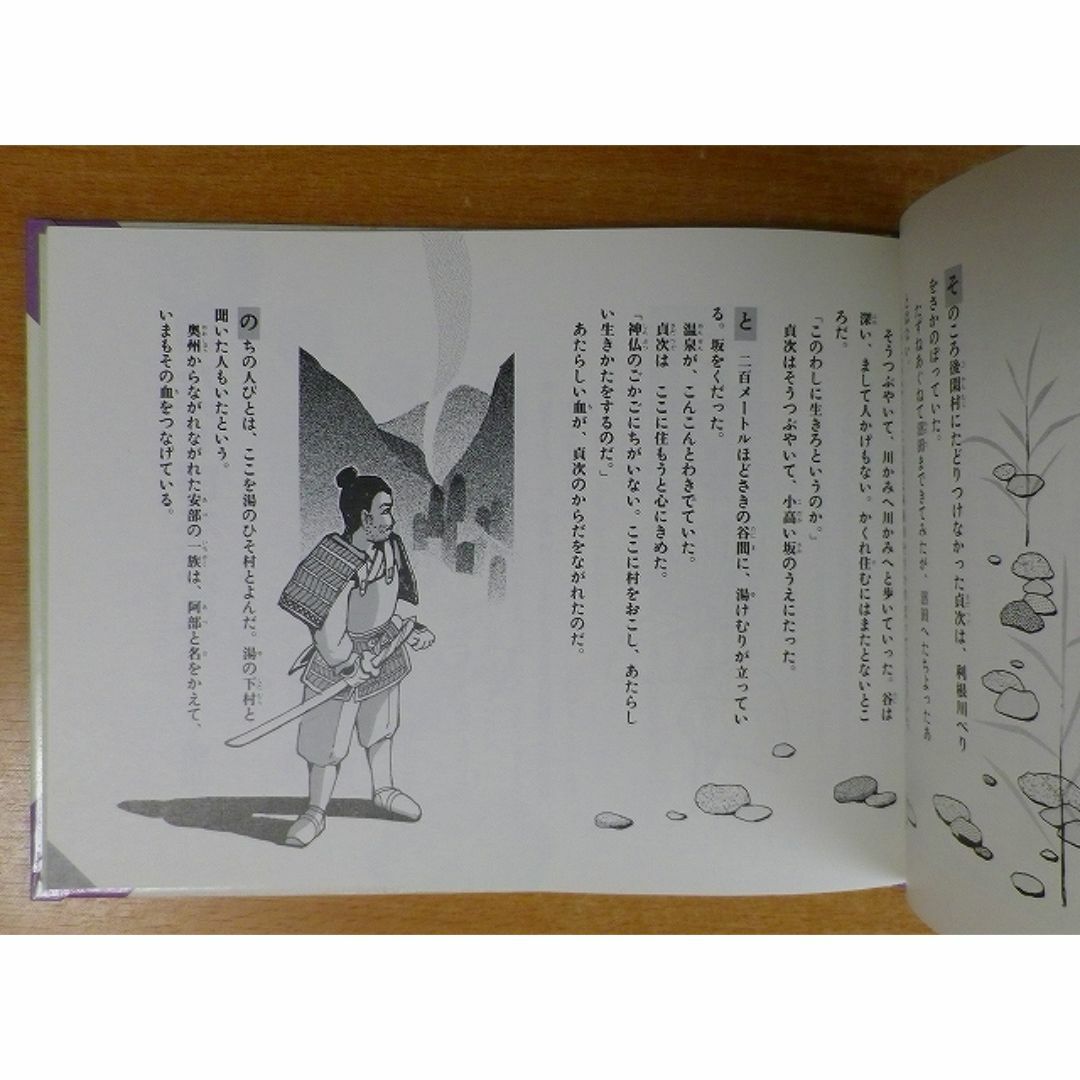 そのころ後閑村にたどりつけなかった貞次は、利根川べり
をさかのぼっていた。
そうつぶやいて、川かみへ川かみへと歩いていった。谷は
深い、まして人かげもない。かくれ住むにはまたとないとこ
ろだ。
「このわしに生きろというのか。」
貞次はそうつぶやいて、小高い坂のうえにたった。
と 二百メートルほどさきの谷間に、湯けむりが立ってい
る。坂をくだった。
温泉が、こんこんとわきでていた。
貞次は ここに住もうと心にきめた。
「神仏のごかごにちがいない。ここに村をおこし、あたらし
い生きかたをするのだ。」
あたらしい血が、貞次のからだをながれたのだ。
のちの人びとは、ここを湯のひそ村とよんだ。湯の下村と
聞いた人もいたという。
奥州からながれながれた安部の一族は、阿部と名をかえて、
いまもその血をつなげている。